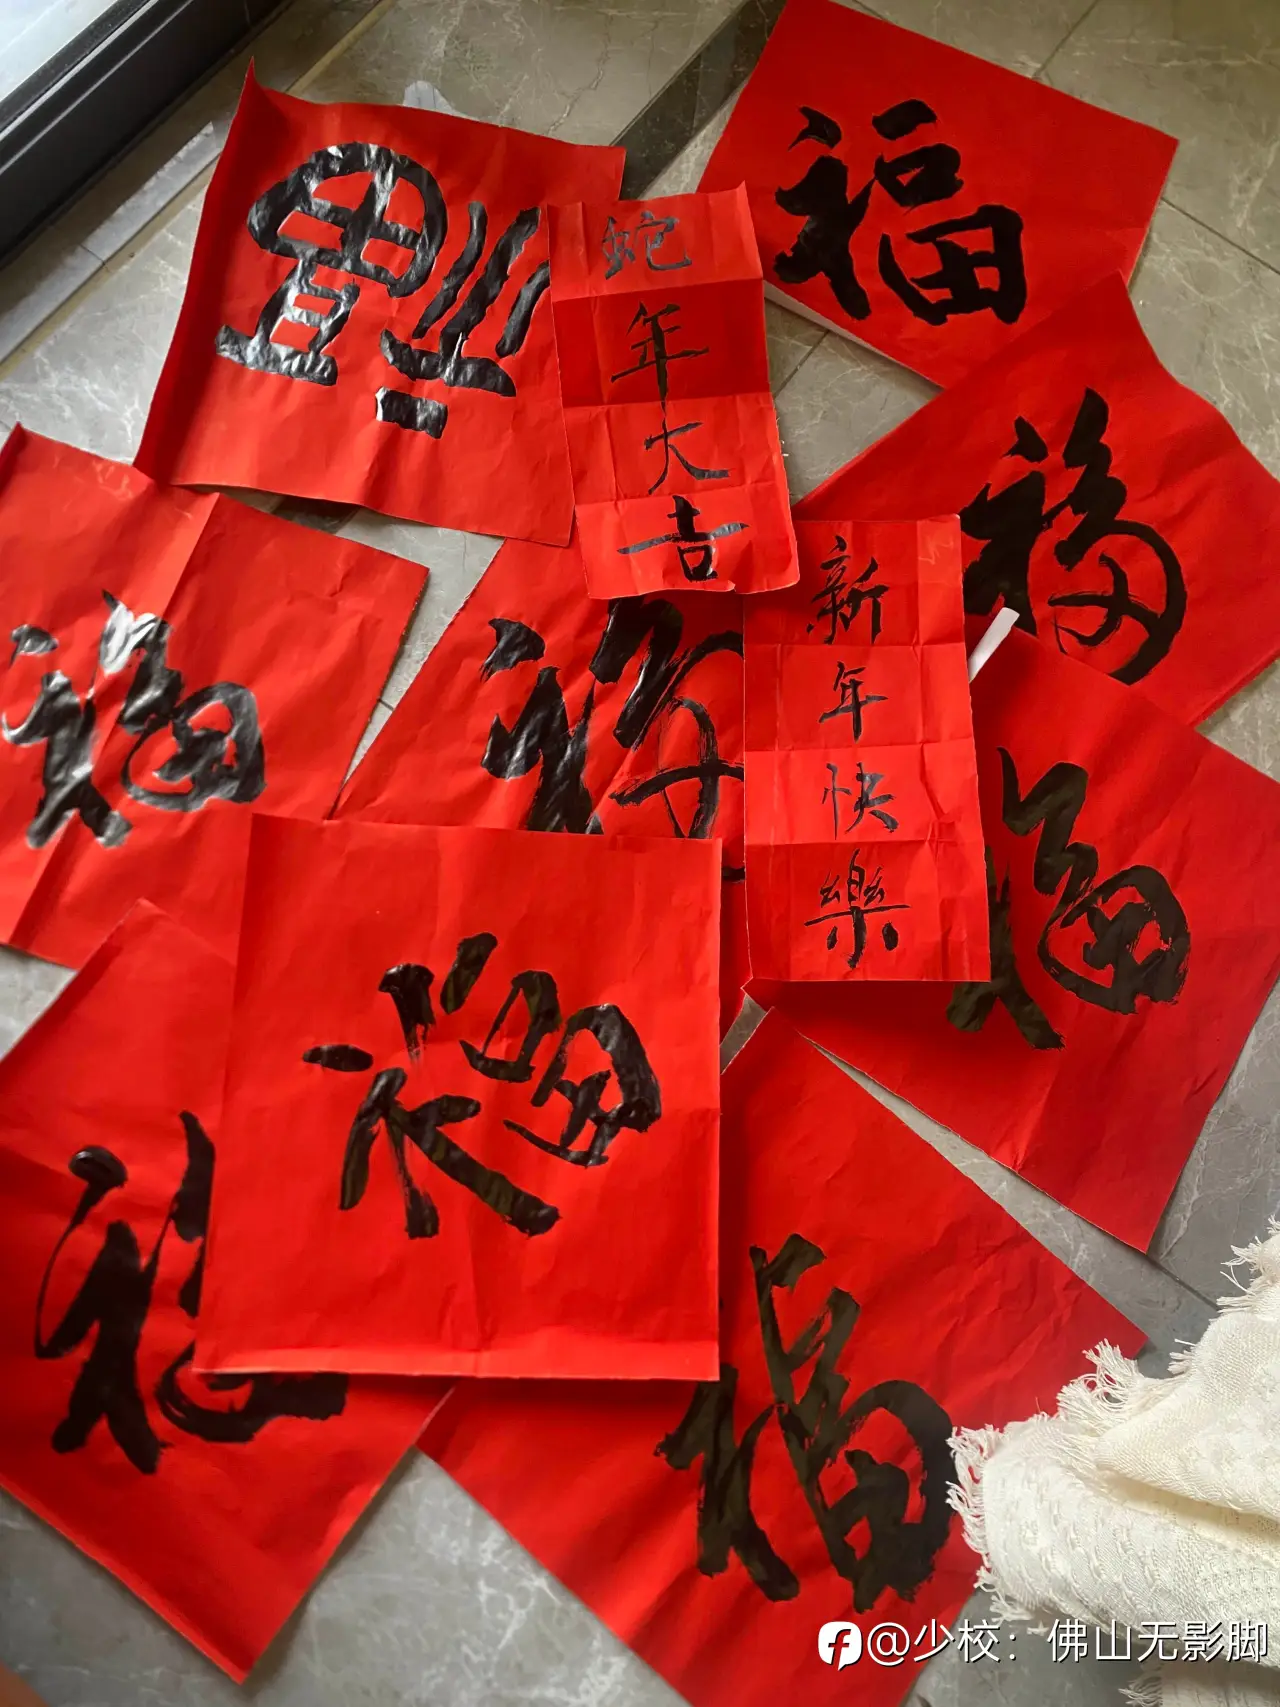 福
福
蛇年大吉
福
福
福
新年快樂
福
福
福
@少校：佛山无影脚